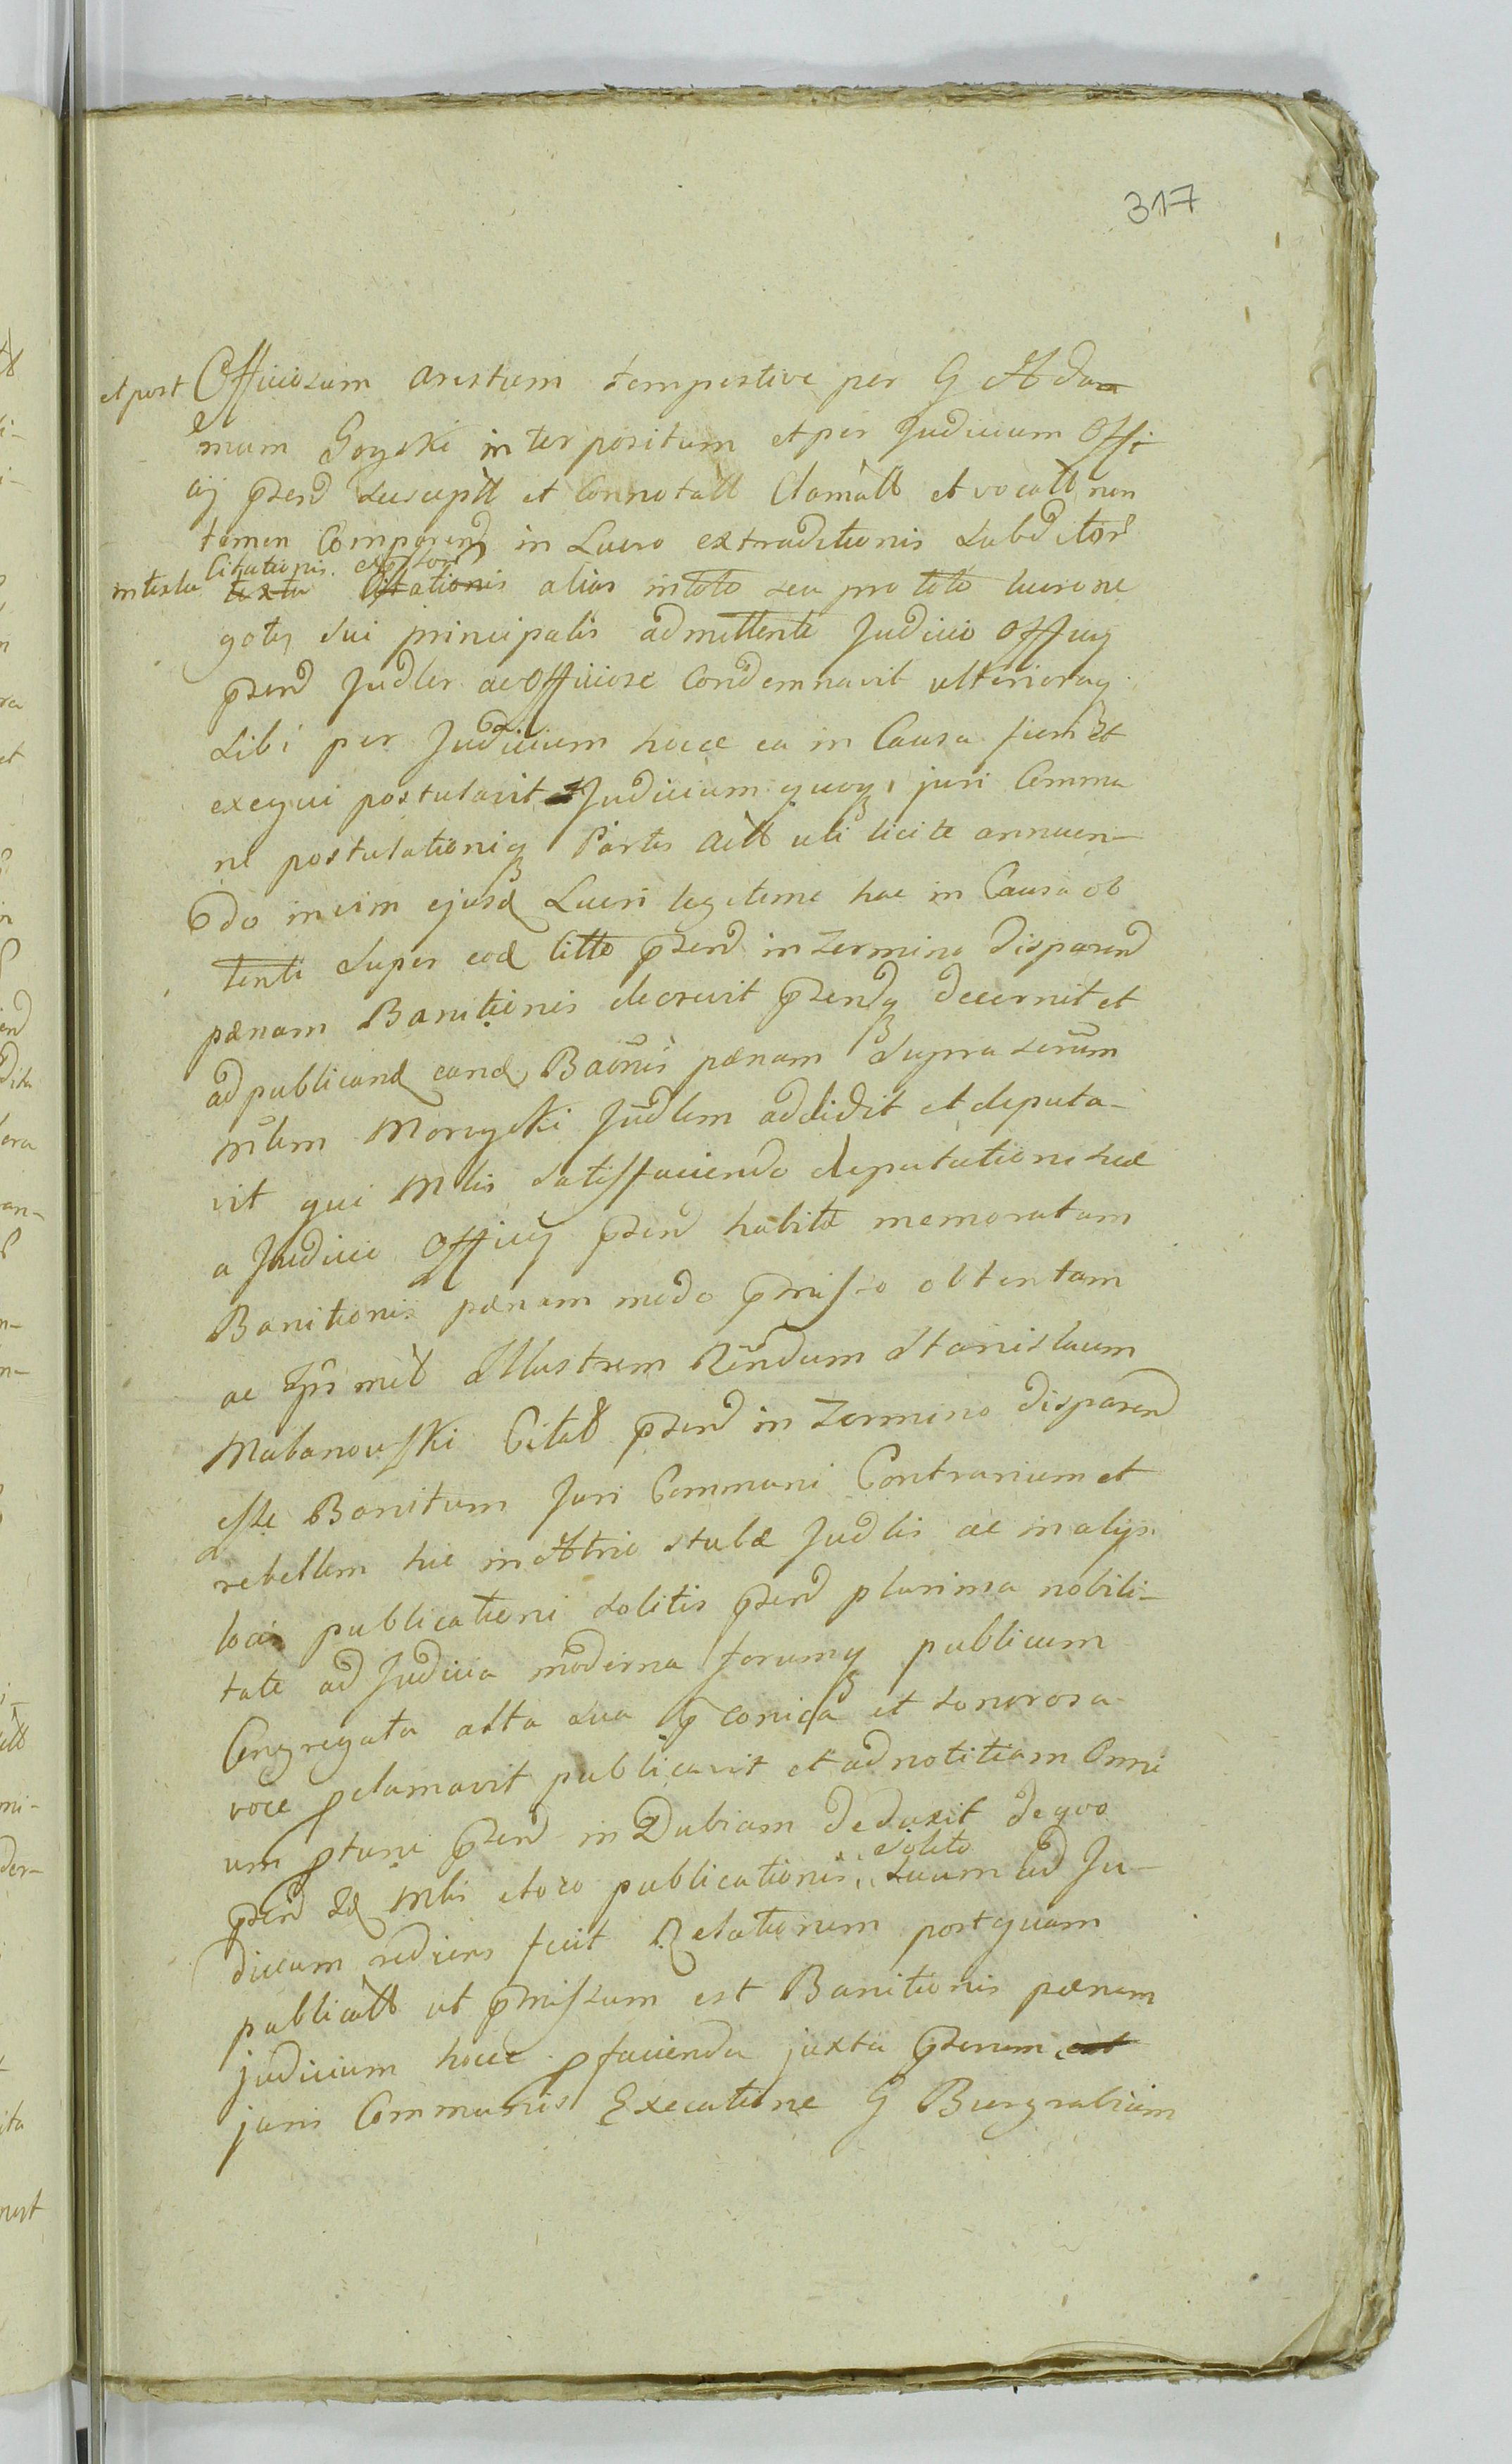 317
et post Officiosum arestum tempestive per G Ada
mum Goyski interpositum et per Judicium Offi
cij pnsend suscuptt et Connotatt Clamatt et vocatt non
tamen Comparend in Lucro extraditionis Subditor
Citationis expssor
in textu textu Citationis alias in toto seu pro toto lucro ne
gotij sui principalis admittente Judicio Officij
pnsend Judler ac Officiose Condemnavit ulterioraq
sibi per Judicium hocce ea in Causa fieri et
exequi postulavit Judicium quoq juri Commu
ni postulationiq Partis Actt uti licite annuen-
do in vim ejusd Lucri legitime hac in Causa ob
tenti super eod Citto pnsend in Termino disparend
pænam Banitionis decrevit pnsendq decernit et
ad publicand eand Baonis pænam supra scrum
Mlem Morzycki Judlem addidit et deputa-
vit qui Mlis satisfaciendo deputationi suæ
a Judicio Officij pnsend habitæ memoratam
Banitionis pænam modo pmisso obtentam
ac Ipsmet Illustrem Rendum Stanislaum
Mabanowski Citat pnsend in Termino disparend
esse Banitum Juri Communi Contrarium et
rebellem hic in Atrio stubæ Judlis ac in alijs
locis publicationi solitis pnsend plurima nobili-
tate ad Judicia moderna forumq publicum
Congregata alta sua pconica et sonorosa
voce pclamavit publicavit et ad notitiam Omni
um ptunc pnsend indubiam deduxit de quo
pnsend Id Mlis e loco publicationis solito suum ad Ju-
dicium rediens fecit Relationem postquam
publicatt ut pmissum est Banitionis pænam
judicium hocce p facienda juxta pnserum
juris Communis Executione G Burgrabium